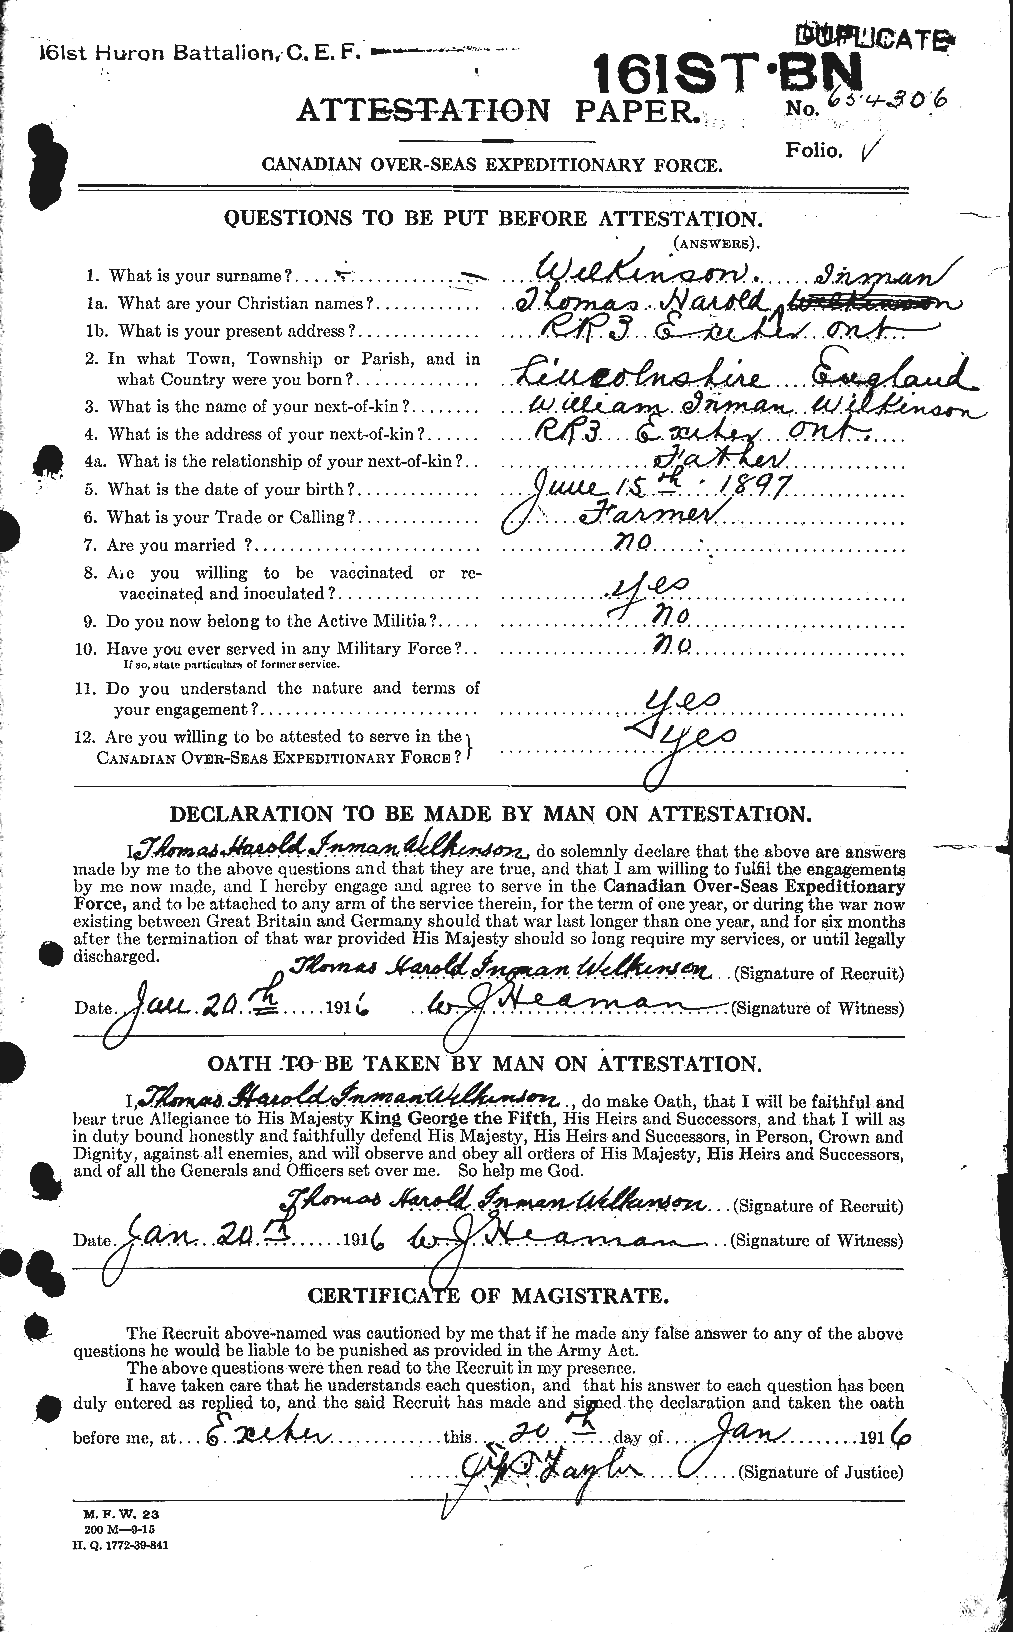 161st Huron Battalion, C. E. F.
DUPLICATE
161ST·BN
ATTESTATION PAPER.
No. 654306
Folio.
CANADIAN OVER-SEAS EXPEDITIONARY FORCE.
QUESTIONS TO BE PUT BEFORE ATTESTATION.
(ANSWERS).
1. What is your surname?.... Wilkinson. Inman
1a. What are your Christian names?.... Thomas Harold, Wilkinson
1b. What is your present address?.... RR3 Exeter Ont
2. In what Town, Township or Parish, and in
what Country were you born?.... Lincolnshire England
3. What is the name of your next-of-kin?.... William Inman Wilkinson
4. What is the address of your next-of-kin?.... RR3 Exeter Ont.
4a. What is the relationship of your next-of-kin?.. Father
5. What is the date of your birth?.... June 15th 1897
6. What is your Trade or Calling?.... Farmer
7. Are you married ?.... no
8. Are you willing to be vaccinated or re-
vaccinated and inoculated?.... yes
9. Do you now belong to the Active Militia?.... no
10. Have you ever served in any Military Force?.. no
If so, state particulars of former service.
11. Do you understand the nature and terms of
your engagement?.... yes
12. Are you willing to be attested to serve in the
CANADIAN OVER-SEAS EXPEDITIONARY FORCE? yes
DECLARATION TO BE MADE BY MAN ON ATTESTATION.
I, Thomas Harold Inman Wilkinson, do solemnly declare that the above are answers
made by me to the above questions and that they are true, and that I am willing to fulfil the engagements
by me now made, and I hereby engage and agree to serve in the Canadian Over-Seas Expeditionary
Force, and to be attached to any arm of the service therein, for the term of one year, or during the war now
existing between Great Britain and Germany should that war last longer than one year, and for six months
after the termination of that war provided His Majesty should so long require my services, or until legally
discharged.
Thomas Harold Inman Wilkinson (Signature of Recruit)
Date. Jan 20th 1916 W J Heaman (Signature of Witness)
OATH TO BE TAKEN BY MAN ON ATTESTATION.
I, Thomas Harold Inman Wilkinson, do make Oath, that I will be faithful and
bear true Allegiance to His Majesty King George the Fifth, His Heirs and Successors, and that I will as
in duty bound honestly and faithfully defend His Majesty, His Heirs and Successors, in Person, Crown and
Dignity, against all enemies, and will observe and obey all orders of His Majesty, His Heirs and Successors,
and of all the Generals and Officers set over me. So help me God.
Thomas Harold Inman Wilkinson (Signature of Recruit)
Date. Jan. 20th 1916 W J Heaman (Signature of Witness)
CERTIFICATE OF MAGISTRATE.
The Recruit above-named was cautioned by me that if he made any false answer to any of the above
questions he would be liable to be punished as provided in the Army Act.
The above questions were then read to the Recruit in my presence.
I have taken care that he understands each question, and that his answer to each question has been
duly entered as replied to, and the said Recruit has made and signed the declaration and taken the oath
before me, at Exeter this 20th day of Jan 1916
(Signature of Justice)
M. F. W. 23
200 M—9-15
H. Q. 1772-39-841